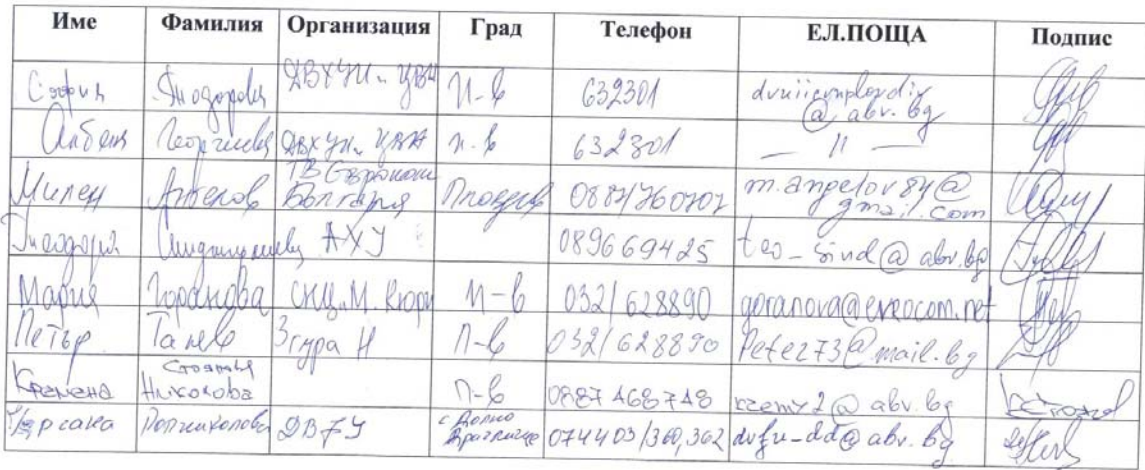 Име Фамилия Организация Град Телефон ЕЛ.ПОЩА Подпис
София Тодорова ДВХУИ „ЦВЛ П-в 632301 @ abv.bg
Албена Георгиева ДВХУИ „ЦВЛ П-в 632301 — 11 —
Милен Ангелов ТВ Еврокоm България Пловдив 0887/760707 m.angelov84@gmail.com
Теодора АХУ 089669425 teo_sind@abv.bg
Мария Горанова СНЦ „М. Кюри П-в 032/628890 goranova@evrocom.net
Петър Танев Згура Н П-в 032/628890 Peter73@mail.bg
Кремена Стоянова Николова П-в 0887 468748 kremy2@abv.bg
ДВГУ с. Долно Драглище 074403/360,362 dvfu-dd@abv.bg